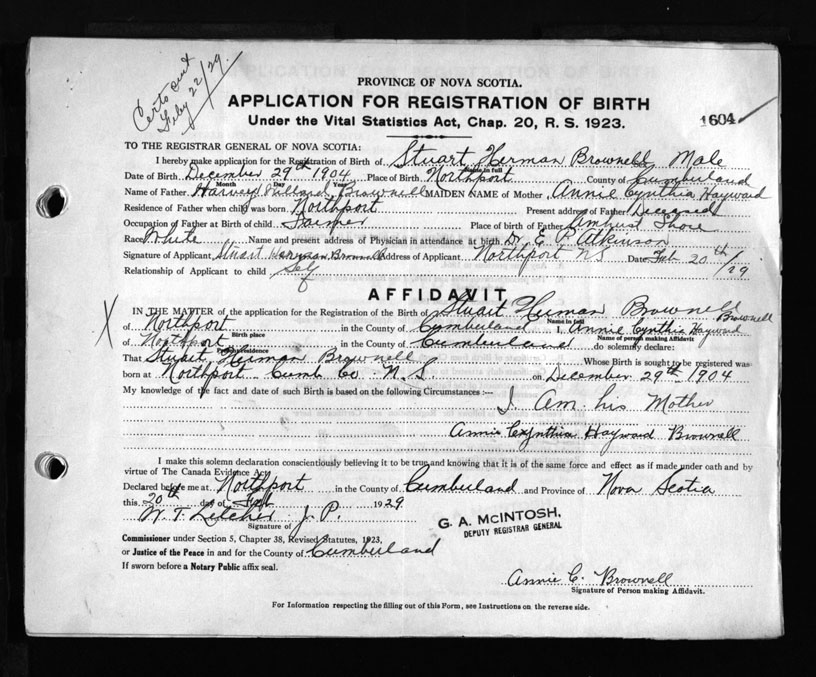 Certs out
Feby 22/29
PROVINCE OF NOVA SCOTIA.
APPLICATION FOR REGISTRATION OF BIRTH
Under the Vital Statistics Act, Chap. 20, R. S. 1923.
1604
TO THE REGISTRAR GENERAL OF NOVA SCOTIA:
I hereby make application for the Registration of Birth of Stuart Herman Brownell Male
Name in full
Date of Birth December 29th 1904 Place of Birth Northport County of Cumberland
Month Day Year
Name of Father Harvey Willard Brownell MAIDEN NAME of Mother Annie Cynthia Hayward
Residence of Father when child was born Northport Present address of Father Deceased
Occupation of Father at Birth of child Farmer Place of birth of Father Amherst Shore
Race White Name and present address of Physician in attendance at birth Dr. E. P. Atkinson
Signature of Applicant Stuart Herman Brownell Address of Applicant Northport NS Date Feb 20th/29
Relationship of Applicant to child Self
AFFIDAVIT
IN THE MATTER of the application for the Registration of the Birth of Stuart Herman Brownell
Name in full
of Northport in the County of Cumberland I, Annie Cynthia Hayward Brownell
Birth place Name of person making Affidavit
of Northport in the County of Cumberland do solemnly declare:
Present residence
That Stuart Herman Brownell Whose Birth is sought to be registered was
born at Northport Cumb Co N.S. on December 29th 1904
My knowledge of the fact and date of such Birth is based on the following Circumstances :—
I Am his Mother
Annie Cynthia Hayward Brownell
I make this solemn declaration conscientiously believing it to be true, and knowing that it is of the same force and effect as if made under oath and by
virtue of The Canada Evidence Act.
Declared before me at Northport in the County of Cumberland and Province of Nova Scotia
this 20th day of Feb 1929
W. T. Letcher J. P.
Signature of
G. A. McINTOSH,
DEPUTY REGISTRAR GENERAL
Commissioner under Section 5, Chapter 38, Revised Statutes, 1923,
or Justice of the Peace in and for the County of Cumberland
If sworn before a Notary Public affix seal.
Annie C. Brownell
Signature of Person making Affidavit.
For Information respecting the filling out of this Form, see Instructions on the reverse side.